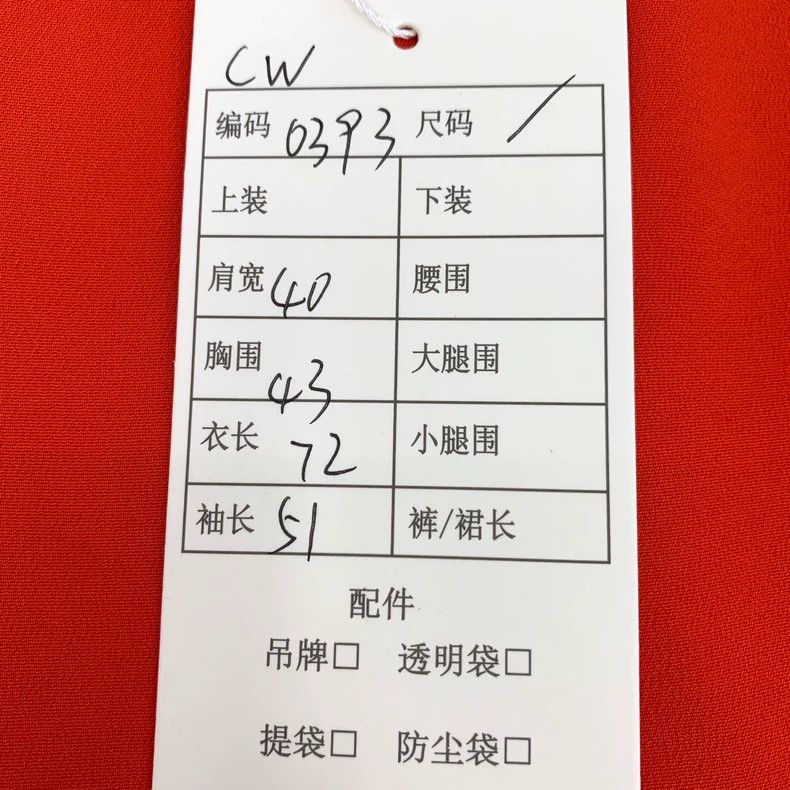 CW
编码 0393 尺码 /
上装 下装
肩宽 40 腰围
胸围 43 大腿围
衣长 72 小腿围
袖长 51 裤/裙长
配件
吊牌□ 透明袋□
提袋□ 防尘袋□